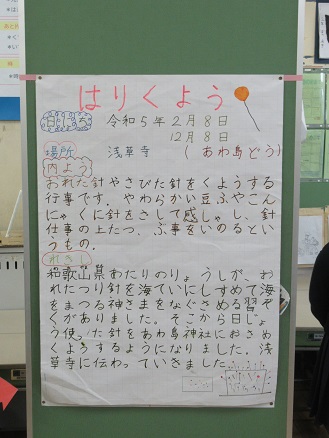 はりくよう
日にち 令和5年2月8日
12月8日
場所 浅草寺 (あわ島どう)
内よう
おれた針やさびた針をくようする
行事です。やわらかい豆ふやこん
にゃくに針をさして感しゃし、針
仕事の上たつ、ぶ事をいのるとい
うもの。
れきし
和歌山県あたりのりょうしが、お
れたつり針を海ていにしずめて海
をまつる神さまをなぐさめる習ぞ
くがありました。そこから日じょ
う使った針をあわ島神社におさめ
くようするようになりました。浅
草寺に伝わっていきました。